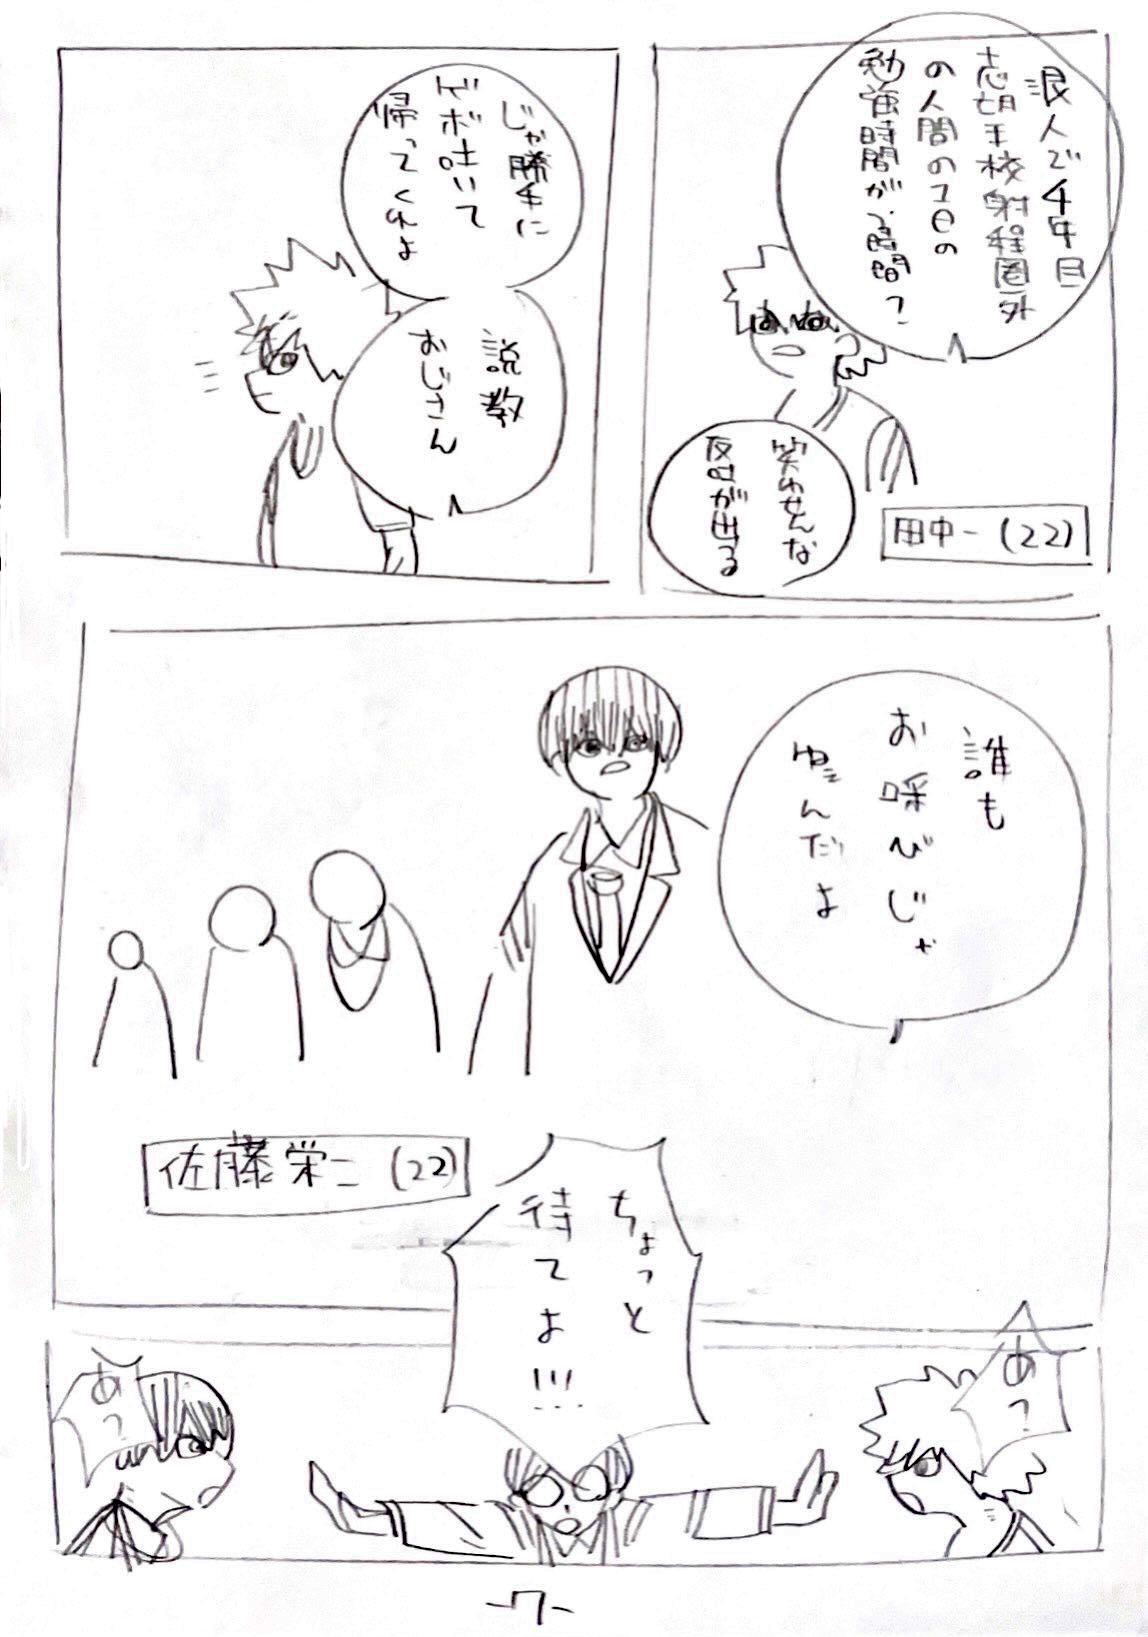 浪人で4年目
志望校射程圏外
の人間の1日の
勉強時間が3時間？
笑わせんな
反吐が出る
田中一(22)
じゃ勝手に
ゲボ吐いて
帰ってくれよ
説教
おじさん
誰も
お呼びじゃ
ねえんだよ
佐藤栄二(22)
ちょっと
待てよ!!!
あ？
あ？
-7-